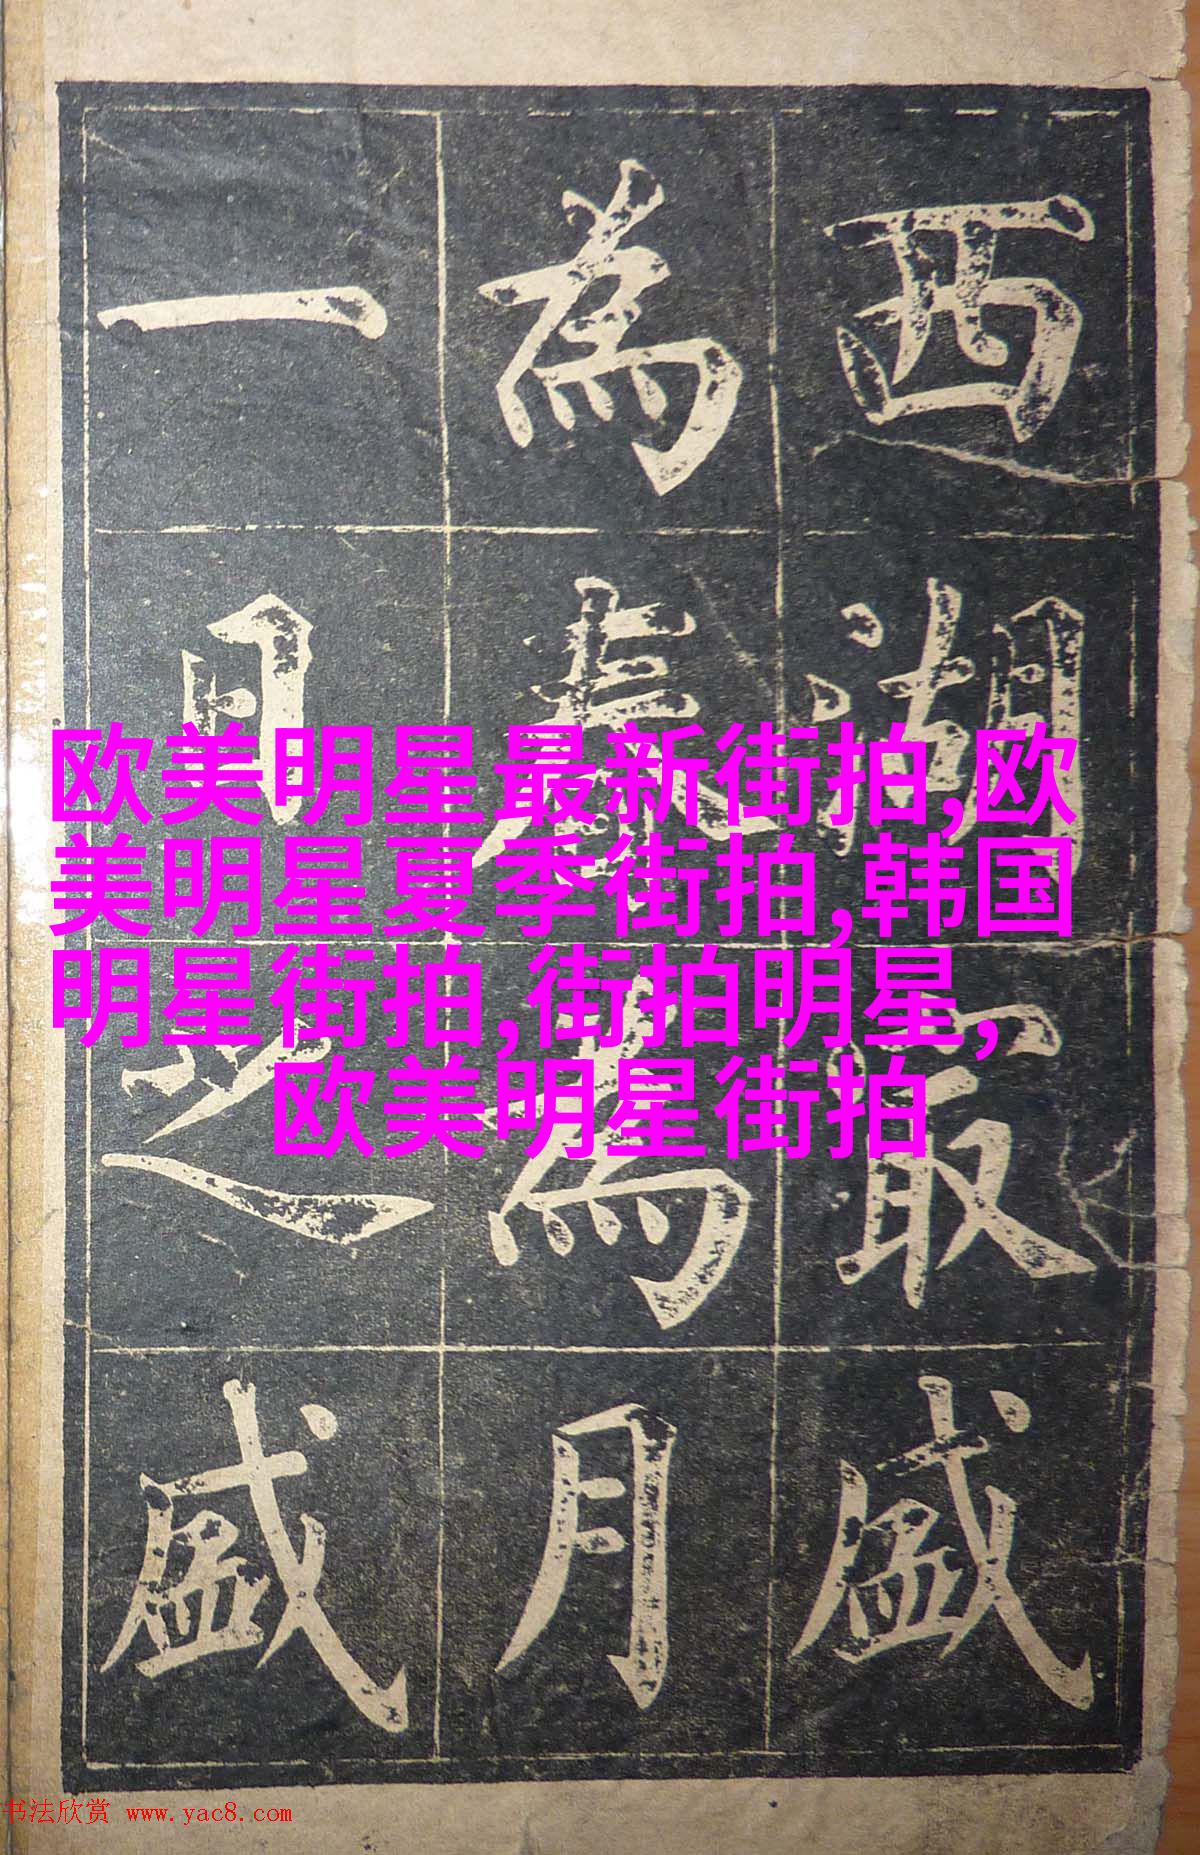 西湖冣盛
為春為月
一日之盛
欧美明星最新街拍,欧
美明星夏季街拍,韩国
明星街拍,街拍明星,
欧美明星街拍
书法欣赏 www.yac8.com